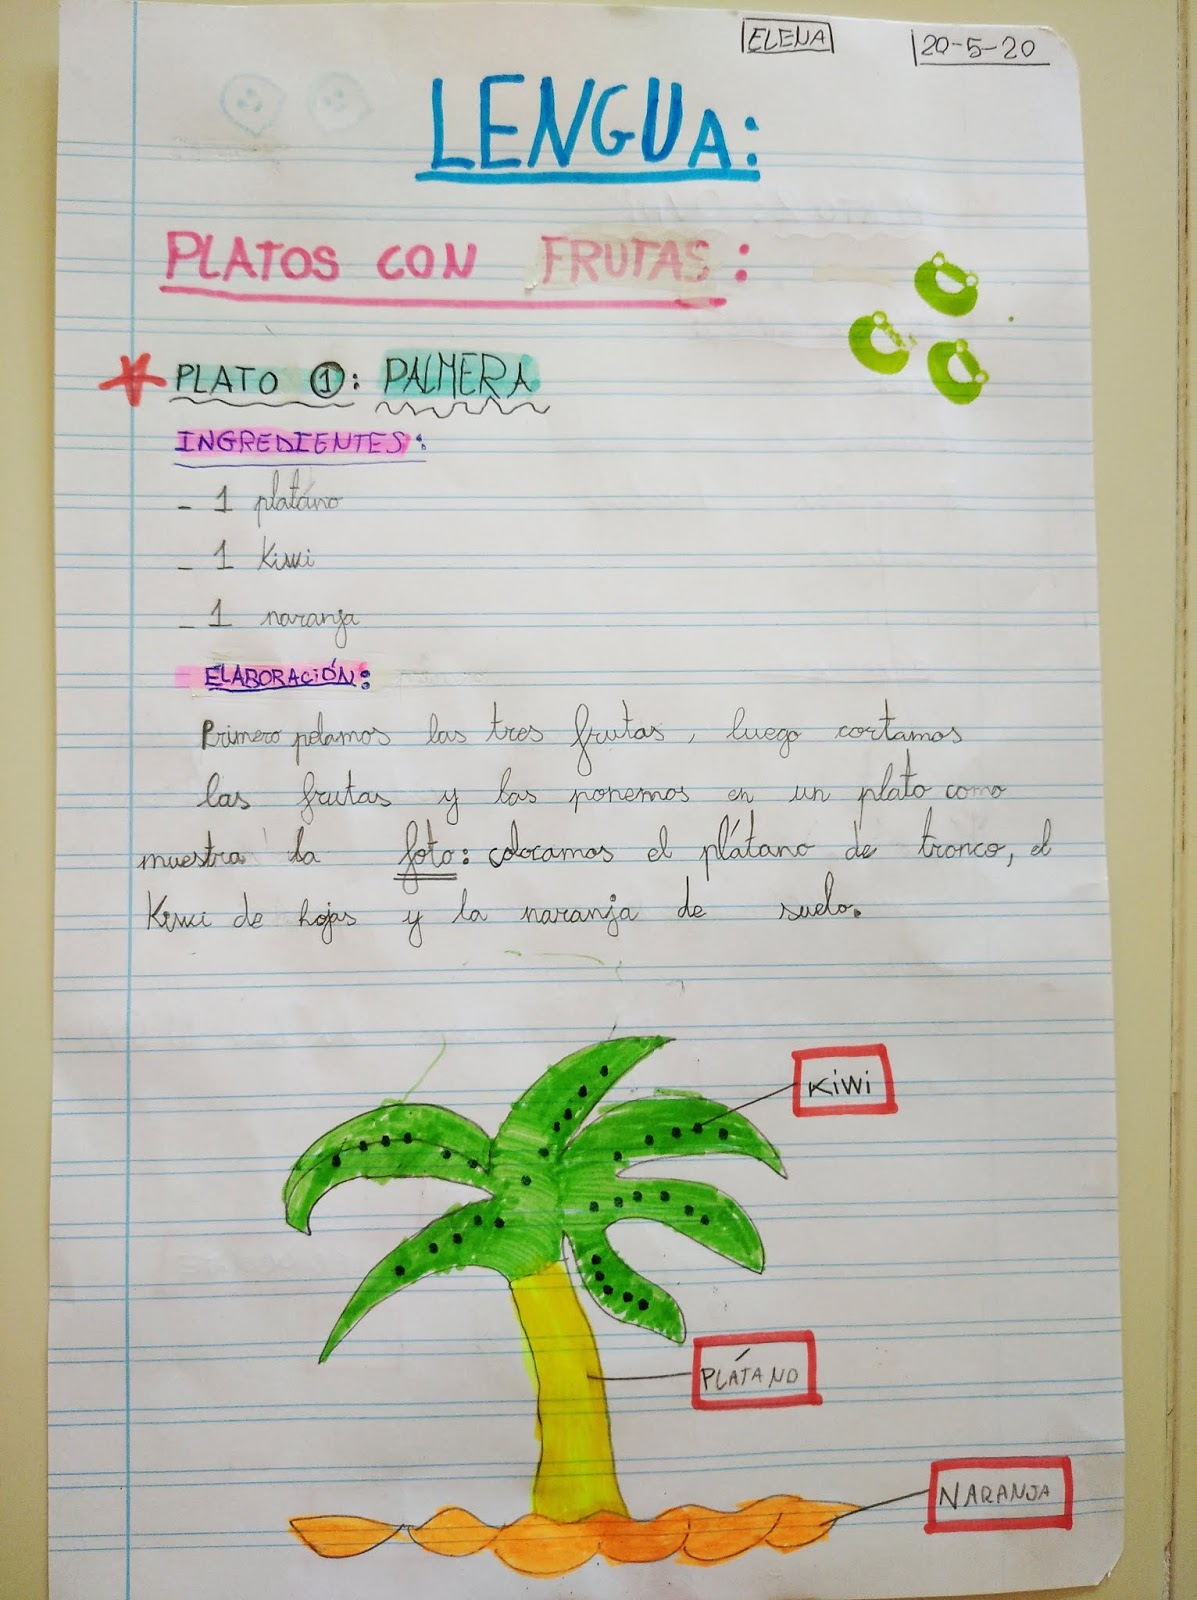 ELENA
20-5-20
LENGUA:
PLATOS CON FRUTAS:
PLATO 1: PALMERA
INGREDIENTES:
- 1 platáno
- 1 kiwi
- 1 naranja
ELABORACIÓN:
Primero pelamos las tres frutas, luego cortamos
las frutas y las ponemos en un plato como
muestra la foto: colocamos el plátano de tronco, el
Kiwi de hojas y la naranja de suelo.
KIWI
PLÁTANO
NARANJA